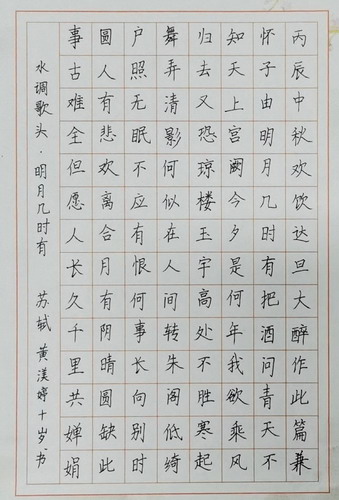 丙辰中秋欢饮达旦大醉作此篇兼
怀子由明月几时有把酒问青天不
知天上宫阙今夕是何年我欲乘风
归去又恐琼楼玉宇高处不胜寒起
舞弄清影何似在人间转朱阁低绮
户照无眠不应有恨何事长向别时
圆人有悲欢离合月有阴晴圆缺此
事古难全但愿人长久千里共婵娟
水调歌头·明月几时有 苏轼 黄渼婷十岁书